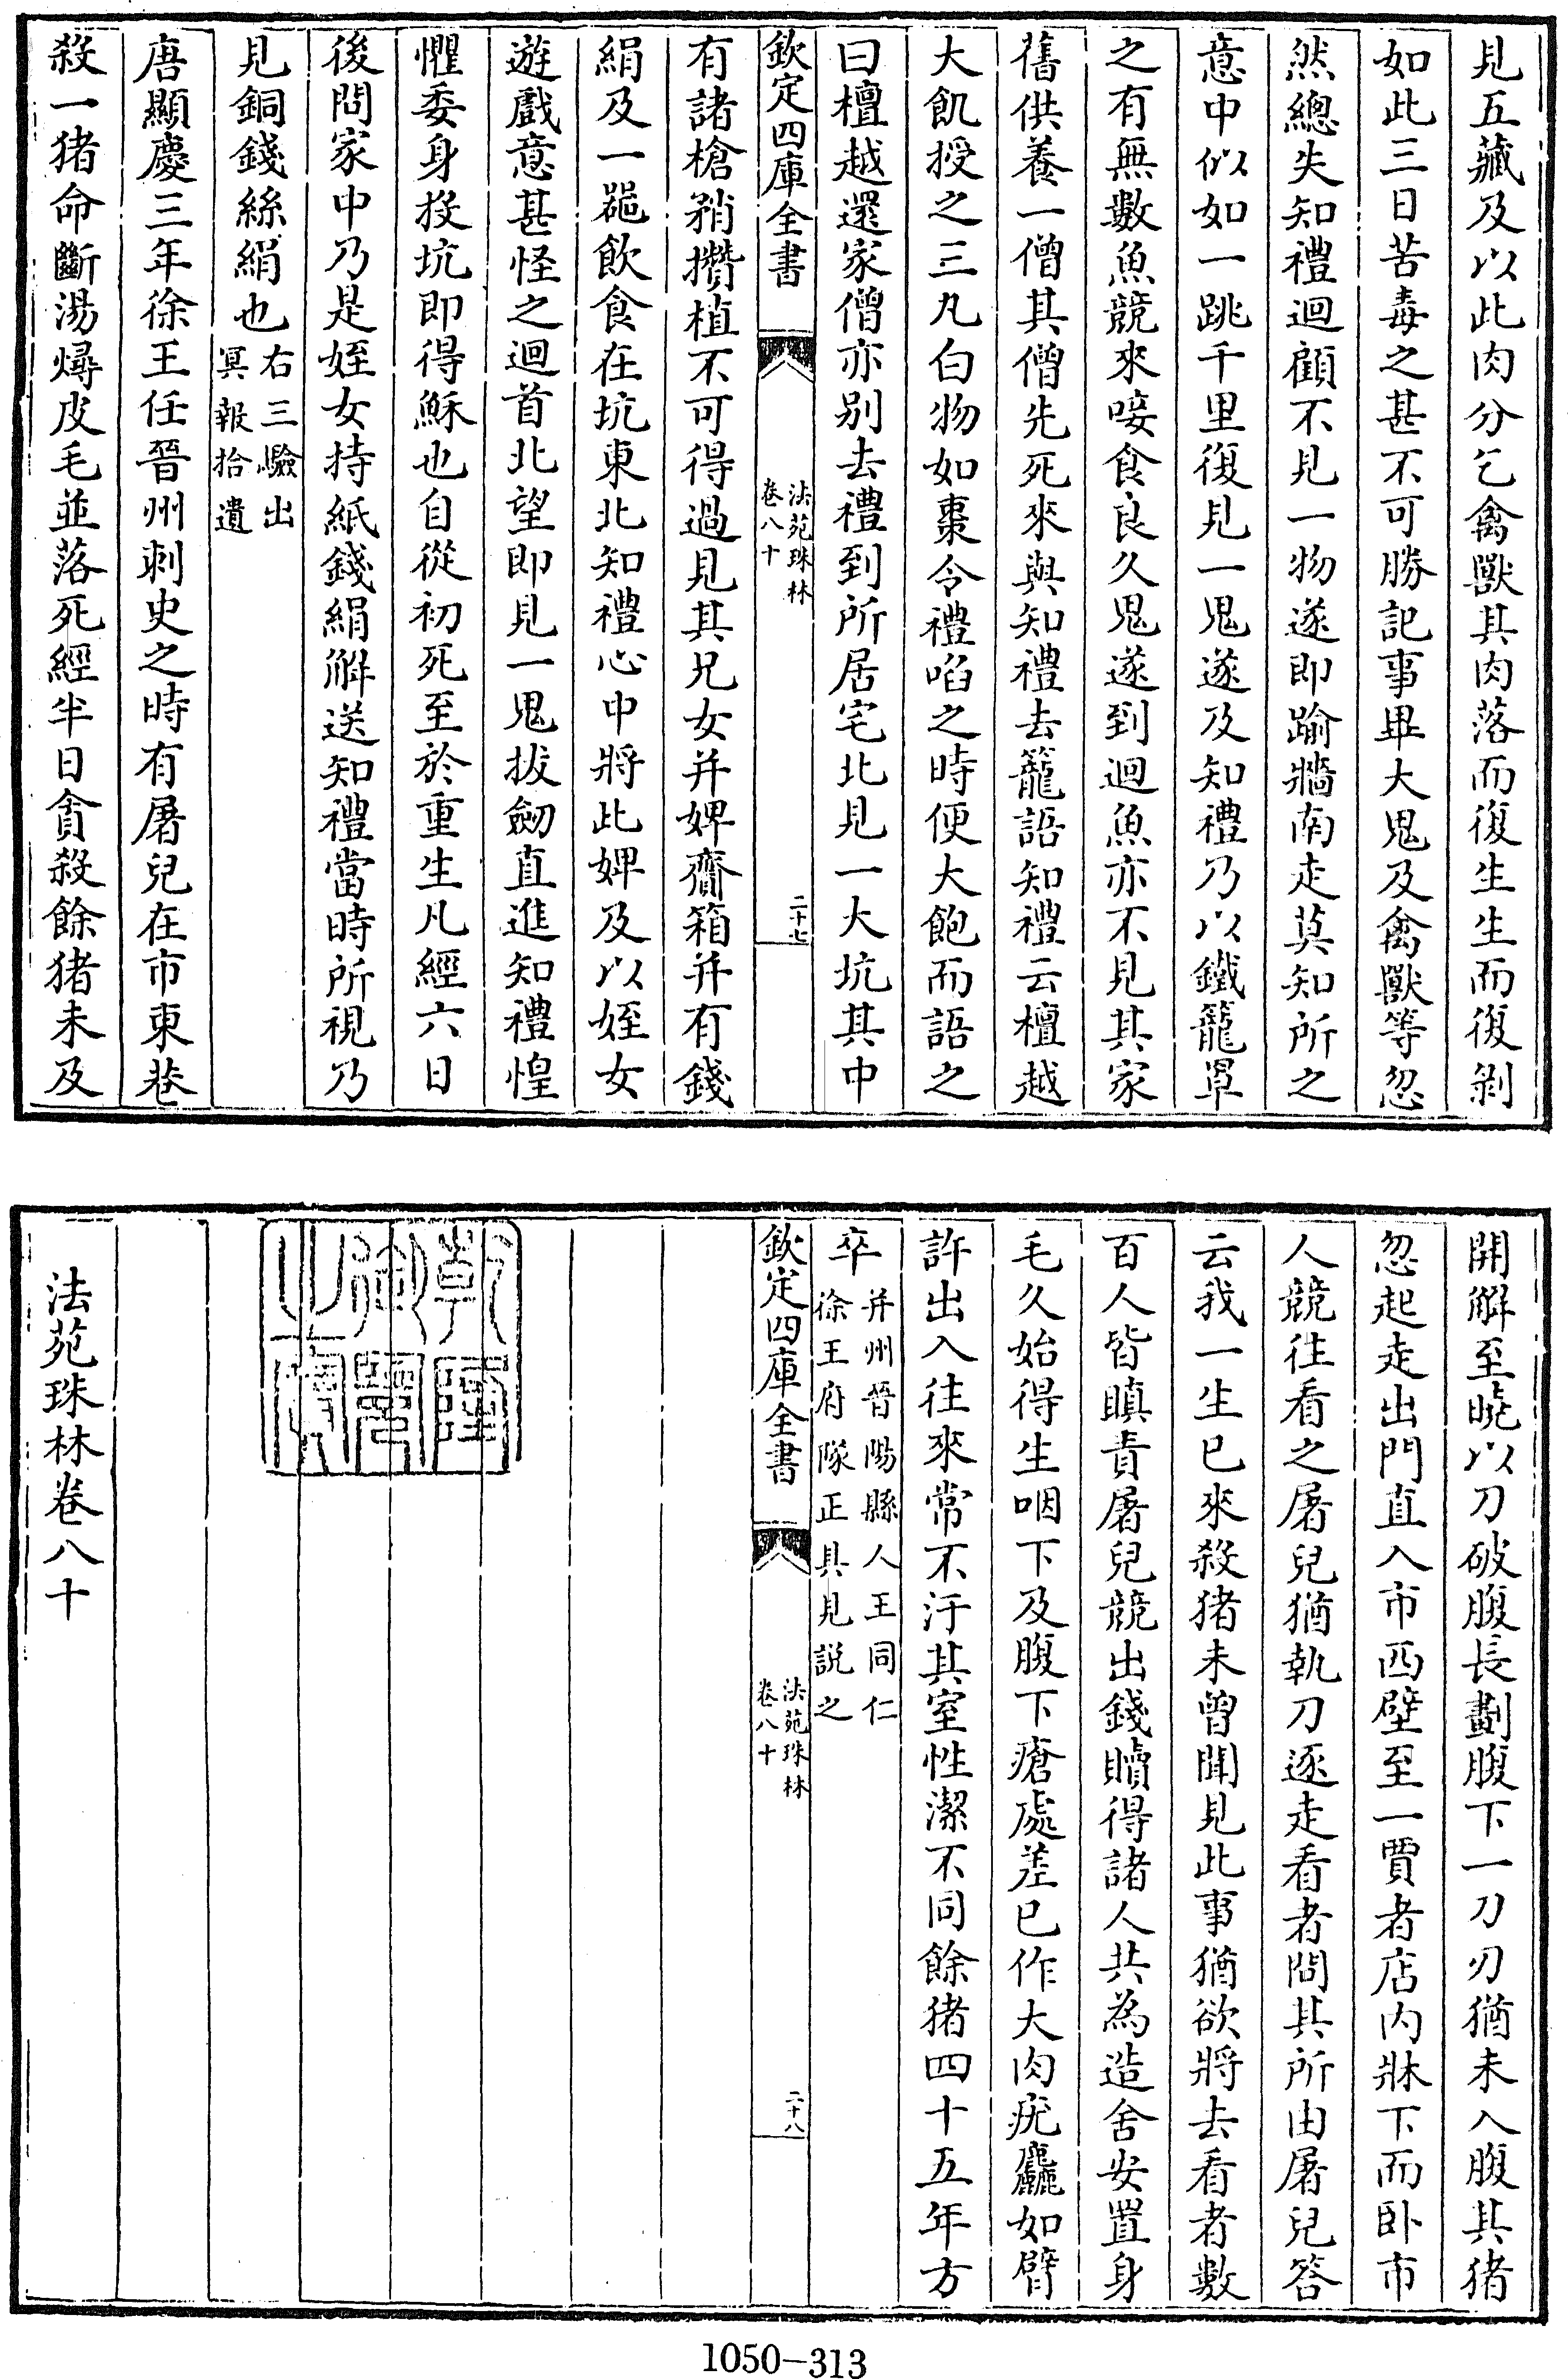 見五藏及以此肉分乞禽獸其肉落而復生生而復剥
如此三日苦毒之甚不可勝記事畢大鬼及禽獸等忽
然總失知禮迴顧不見一物遂即踰牆南走莫知所之
意中似如一跳千里復見一鬼遂及知禮乃以鐵籠罩
之有無數魚競來唼食良久鬼遂到迴魚亦不見其家
舊供養一僧其僧先死來與知禮去籠語知禮云檀越
大飢授之三丸白物如棗令禮啗之時便大飽而語之
曰檀越還家僧亦別去禮到所居宅北見一大坑其中
欽定四庫全書
法苑珠林
卷八十
二十七
有諸槍矟攢植不可得過見其兄女并婢齎箱并有錢
絹及一噐飲食在坑東北知禮心中將此婢及以姪女
遊戲意甚怪之迴首北望即見一鬼拔劒直進知禮惶
懼委身投坑即得穌也自從初死至於重生凡經六日
後問家中乃是姪女持紙錢絹解送知禮當時所視乃
見銅錢絲絹也
右三驗出
冥報拾遺
唐顯慶三年徐王任晉州刺史之時有屠兒在市東巷
殺一猪命斷湯燖皮毛並落死經半日貪殺餘猪未及
開解至曉以刀破腹長劃腹下一刀刃猶未入腹其猪
忽起走出門直入市西壁至一賈者店内牀下而卧市
人競往看之屠兒猶執刀逐走看者問其所由屠兒答
云我一生已來殺猪未曾聞見此事猶欲將去看者數
百人皆瞋責屠兒競出錢贖得諸人共為造舍安置身
毛久始得生咽下及腹下瘡處差已作大肉疣麤如臂
許出入往來常不汙其室性潔不同餘猪四十五年方
卒
并州晉陽縣人王同仁
徐王府隊正具見説之
欽定四庫全書
法苑珠林
卷八十
二十八
乾隆
御覽
之寶
法苑珠林卷八十
1050-313